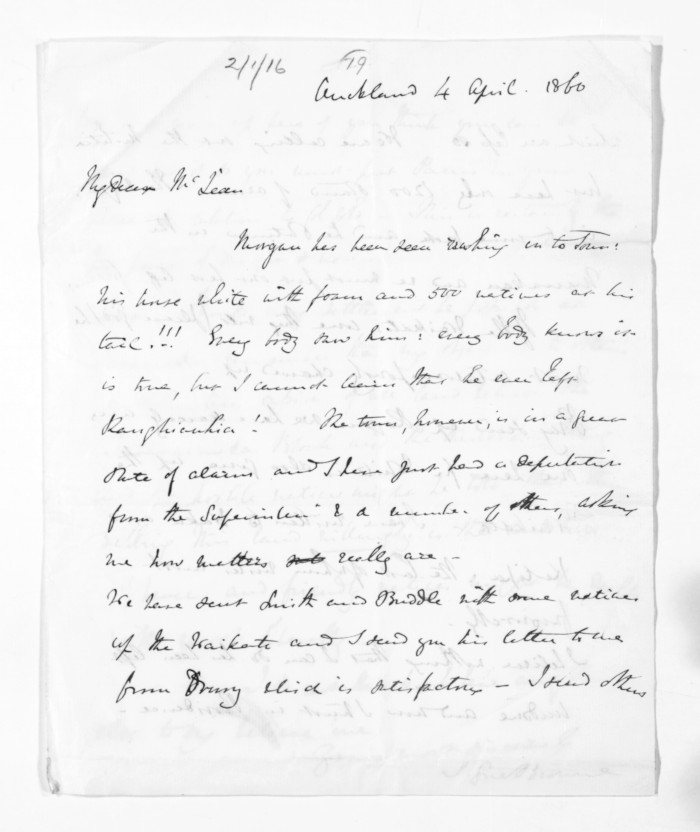 2/1/16 79
Auckland 4 April. 1860
My dear McLean
Morgan has been seen rushing in to Town:
his horse white with foam and 500 natives at his
tail!!! Every body saw him: every body knows it
is true, but I cannot learn that he ever left
Rangiaohia! The town, however, is in a great
state of alarm and I have just had a deputation
from the Superintendt & a number of others, asking
me how matters really are -
We have sent Smith and Buddle with some natives
up the Waikato and I send you his letter to me
from Drury which is satisfactory - I send others